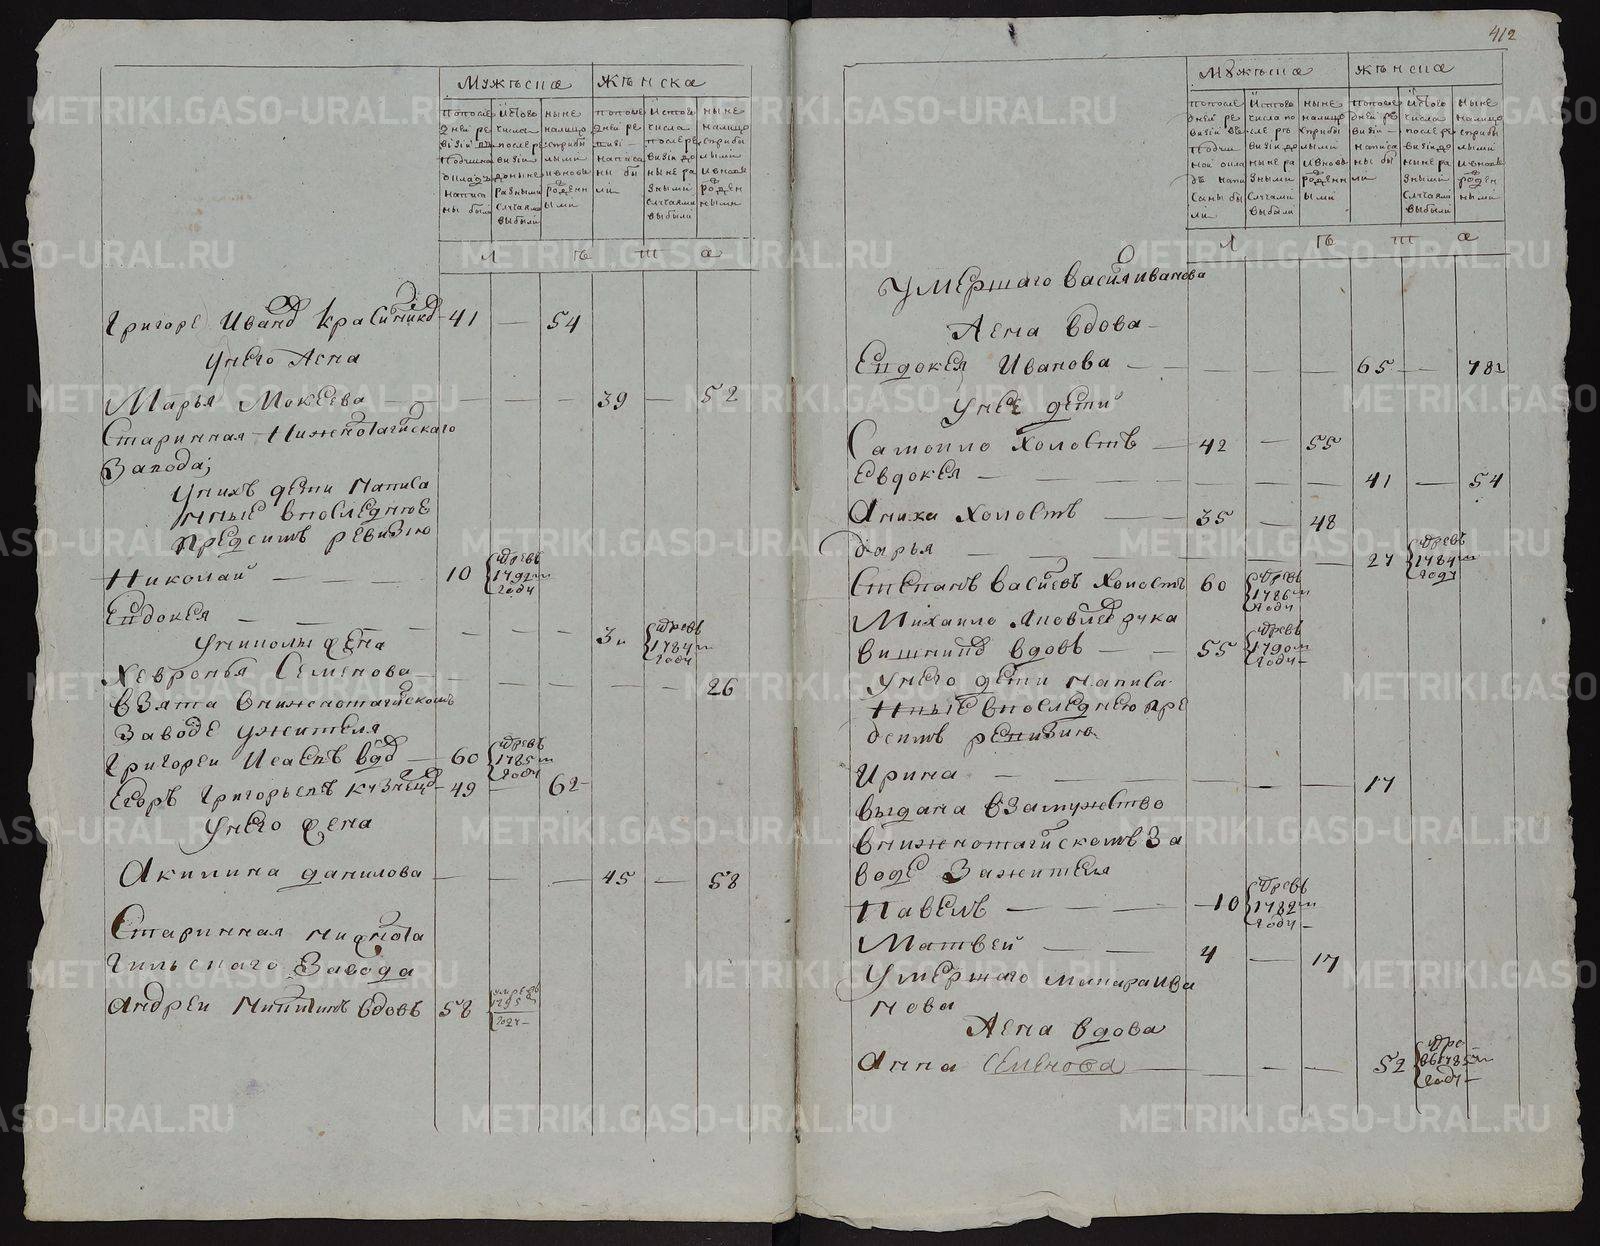 412
Мужеска Женска
попосле
дней ре
визии въ
подушна
окладъ
написа
ны были
Истого
числа
после ре
визии
доныне
разными
случаями
выбыли
ныне
налицо
сприбы
лыми
ивновь
рожден
ыми
попосле
дней ре
визи
написа
ны бы
ли
Истого
числа
после ре
визии до
ныне ра
зными
случаями
выбыли
ныне
налицо
сприбы
лыми
ивновь
рожден
ными
Л ѣ т а
Григореи Иванов 41 — 54
Унего жена
Марья Мокеева — 39 — 52
Старинная Нижнотагилскаго
Завода;
Унихъ дети написа
нные впоследнюю
предсимъ ревизию
Николаи — 10 умревъ 1792м году
Евдокея — умревъ 1784м году
Униколы жена
Хевронья Семенова — 26
взята внижнотагилскомъ
Заводе ужителя
Григореи Исаевъ вдов — 60 умревъ 1785м году
Егоръ Григорьевъ кузнецов 49 — 62
Унего жена
Акилина данилова — 45 — 58
Старинная нижнота
гильскаго Завода
Андреи Никитинъ вдовъ 58 умревъ 1795 году
Мужеска Женска
попосле
дней ре
визии въ
подуш
ной окла
дъ напи
саны бы
ли
Истого
числа по
сле ре
визии до
ныне ра
зными
случаями
выбыли
ныне
налицо
сприбы
лыми
ивновь
рожденн
ыми
попосле
дней ре
визии
написа
ны бы
ли
Истого
числа
после ре
визии до
ныне ра
зными
случаями
выбыли
ныне
налицо
сприбы
лыми
ивновь
рожден
ными
Л ѣ т а
Умершаго василя иванова
Жена вдова
Евдокея Иванова — 65 — 78
Унее дети
Самоило холостъ — 42 — 55
Евдокея — 41 — 54
Аника холостъ — 35 — 48
дарья — 27 умревъ 1784м году
Степанъ васиевъ холостъ 60 умревъ 1786м году
Михаило Яковлев
вишнинъ вдовъ — 55 умревъ 1790м году
Унего дети написа
нные впоследнею пре
дсимъ ревизию
Ирина — 17
выдана взамужство
внижнотагилскомъ За
воде Зажителя
Павелъ — 10 умревъ 1782м году
Матвеи — 4 — 17
Умершаго макара ива
нова
Жена вдова
Анна Семенова — 52 умре въ1785м году